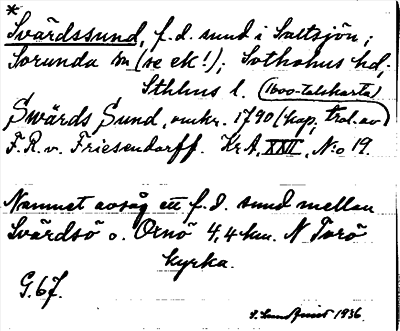 *
Svärdssund, f.d. sund i Saltsjön;
Sorunda sn (se ek!); Sotholms hd;
Sthlms l. (1600-talskarta)
Swärds Sund, omkr. 1790 (kop, trol. av
F.R.v. Friesendorff. Kr.A, XXVI, N:o 19.
Namnet avsåg ett f.d. sund mellan
Svärdsö o. Ornö 4,4 km. N Torö
kyrka.
G.67.
S. Sundqvist 1936.